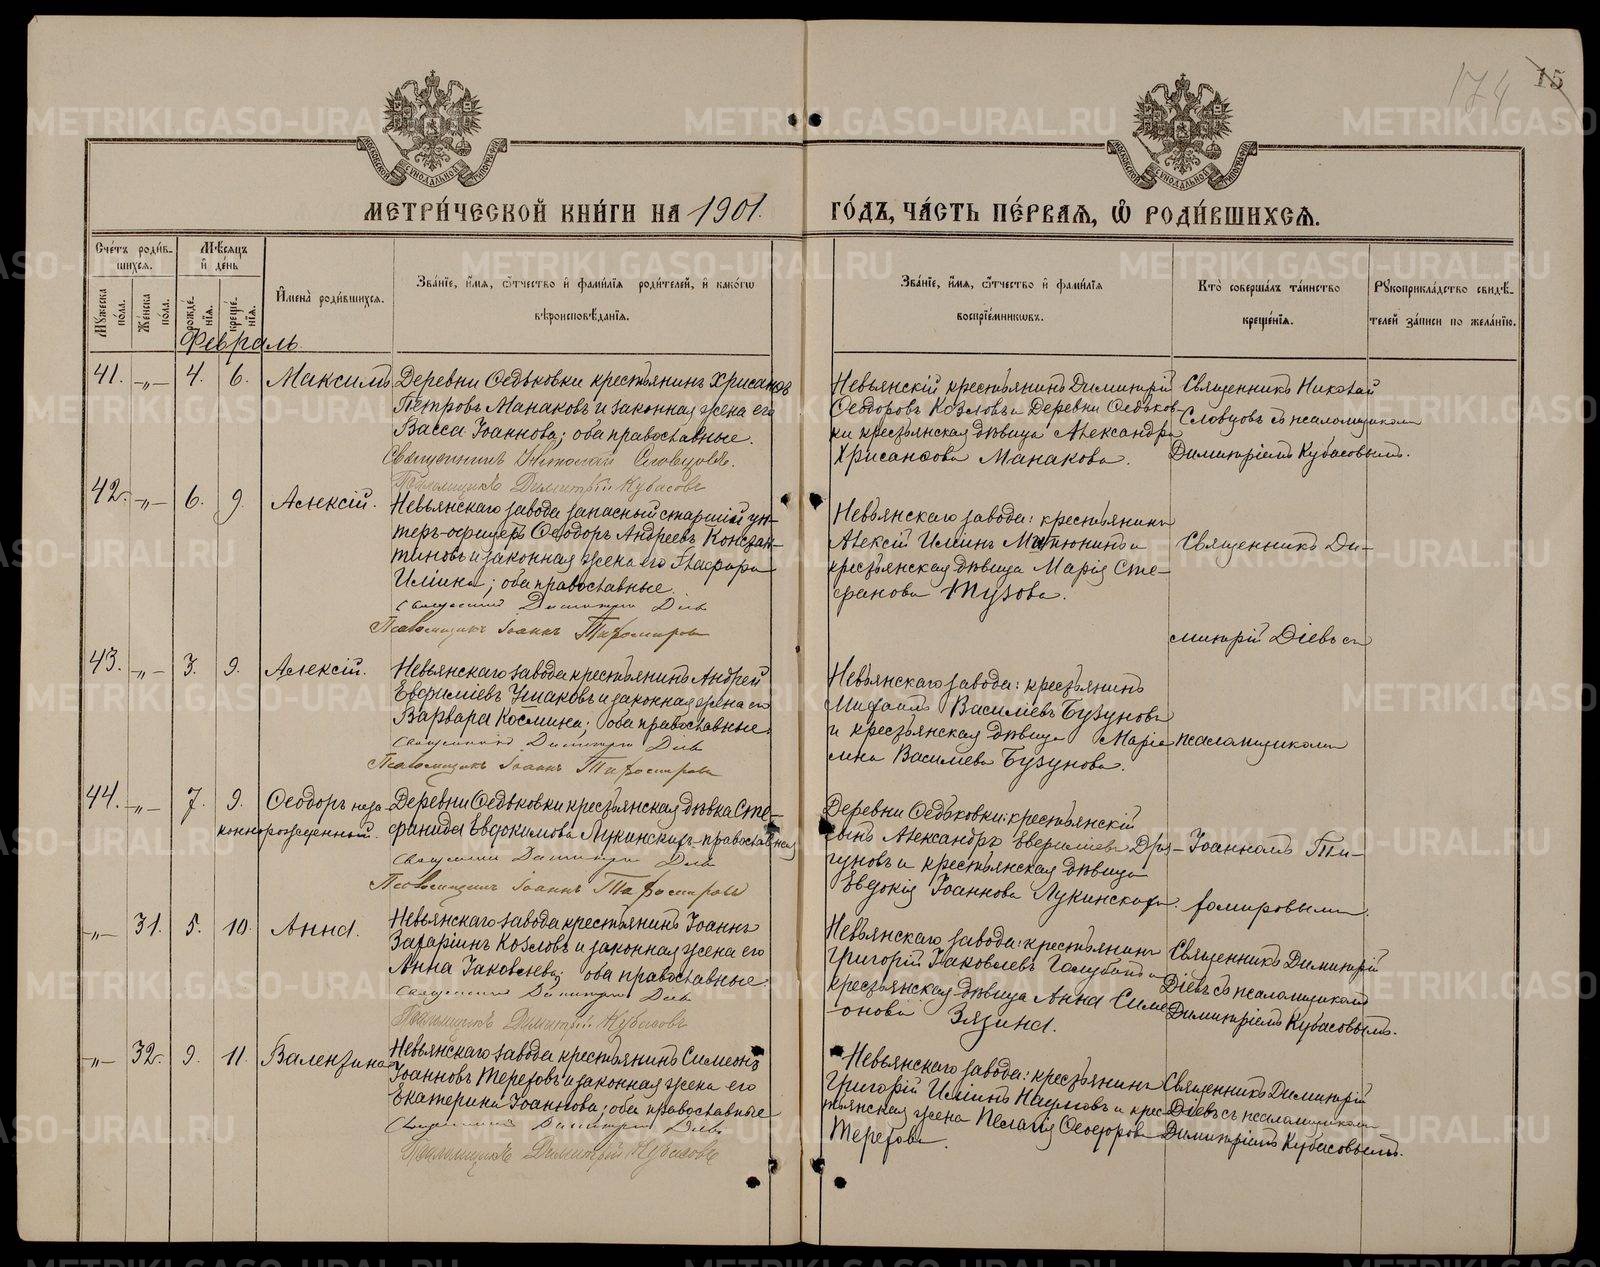 174
15
МОСКОВСКОЙ СѴНОДАЛЬНОЙ ТИПОГРАФІИ
МОСКОВСКОЙ СѴНОДАЛЬНОЙ ТИПОГРАФІИ
МЕТРИ́ЧЕСКОЙ КНИ́ГИ НА 1901.
ГО́ДЪ, ЧА́СТЬ ПЕ́РВАЯ, Ѡ҆ РОДИ́ВШИХСЯ.
Сче́тъ роди́в-
шихся.
Мѣ́сяцъ
и҆ де́нь
Мꙋ́жеска
по́ла.
Же́нска
по́ла.
рожде́-
нїя.
креще́-
нїя.
И҆мена̀ роди́вшихся.
Зва́нїе, и҆́мя, ѻ҆́тчество и҆ фами́лїя роди́телей, и҆ како́гѡ
вѣроисповѣ́данїя.
Зва́нїе, и҆́мя, ѻ҆́тчество и҆ фами́лїя
воспрїе́мниковъ.
Кто̀ соверша́лъ та́инство
креще́нїя.
Рꙋкоприкла́дство свидѣ́-
телей за́писи по жела́нїю.
Февраль.
41. -"- 4. 6. Максимъ
Деревни Ѳедьковки крестьянинъ Хрисанѳъ
Петровъ Манаковъ и законная жена его
Васса Іоаннова; оба православные.
Священникъ Николай Словцовъ.
Псаломщикъ Димитрій Кубасовъ
Невьянскій крестьянинъ Димитрій
Ѳеодоровъ Козловъ и Деревни Ѳедьков-
ки крестьянская дѣвица Александра
Хрисанѳова Манакова.
Священникъ Николай
Словцовъ съ псаломщикомъ
Димитріемъ Кубасовымъ.
42. -"- 6. 9. Алексій.
Невьянскаго завода запасный старшій ун-
теръ-офицеръ Ѳеодоръ Андреевъ Констан-
тиновъ и законная жена его Глафира
Ильина; оба православные.
Священникъ Димитрій Діевъ
Псаломщикъ Іоаннъ Тихомировъ
Невьянскаго завода: крестьянинъ
Алексій Ильинъ Матюнинъ и
крестьянская дѣвица Марія Сте-
фанова Тузова.
Священникъ Ди-
митрій Діевъ съ
43. -"- 3. 9. Алексій.
Невьянскаго завода крестьянинъ Андрей
Евфиміевъ Ушаковъ и законная жена его
Варвара Космина; оба православные.
Священникъ Димитрій Діевъ
Псаломщикъ Іоаннъ Тихомировъ
Невьянскаго завода: крестьянинъ
Михаилъ Василіевъ Бузуновъ
и крестьянская дѣвица Маріа-
мна Василіева Бузунова.
псаломщикомъ
44. -"- 7. 9. Ѳеодоръ неза-
коннорожденный.
Деревни Ѳедьковки крестьянская дѣвка Сте-
фанида Евдокимова Лукинскихъ, православная
Священникъ Димитрій Діевъ
Псаломщикъ Іоаннъ Тихомировъ
Деревни Ѳедьковки: крестьянскій
сынъ Александръ
гуновъ и крестьянская дѣвица
Евдокія Іоаннова Лукинскихъ.
Іоанномъ Ти-
хомировымъ.
-"- 31. 5. 10. Анна.
Невьянскаго завода крестьянинъ Іоаннъ
Захаріинъ Козловъ и законная жена его
Анна Іаковлева; оба православные.
Священникъ Димитрій Діевъ
Псаломщикъ Димитрій Кубасовъ
Невьянскаго завода: крестьянинъ
Григорій Іаковлевъ и
крестьянская дѣвица Анна Симе-
онова Зязина.
Священникъ Димитрій
Діевъ съ псаломщикомъ
Димитріемъ Кубасовымъ.
-"- 32. 9. 11. Валентина
Невьянскаго завода крестьянинъ Симеонъ
Іоанновъ Тереховъ и законная жена его
Екатерина Іоаннова; оба православные
Священникъ Димитрій Діевъ
Псаломщикъ Димитрій Кубасовъ
Невьянскаго завода: крестьянинъ
Григорій Ильинъ Наумовъ и крес-
тьянская жена Пелагія Ѳеодорова
Терехова.
Священникъ Димитрій
Діевъ съ псаломщикомъ
Димитріемъ Кубасовымъ.
METRIKI.GASO-URAL.RU